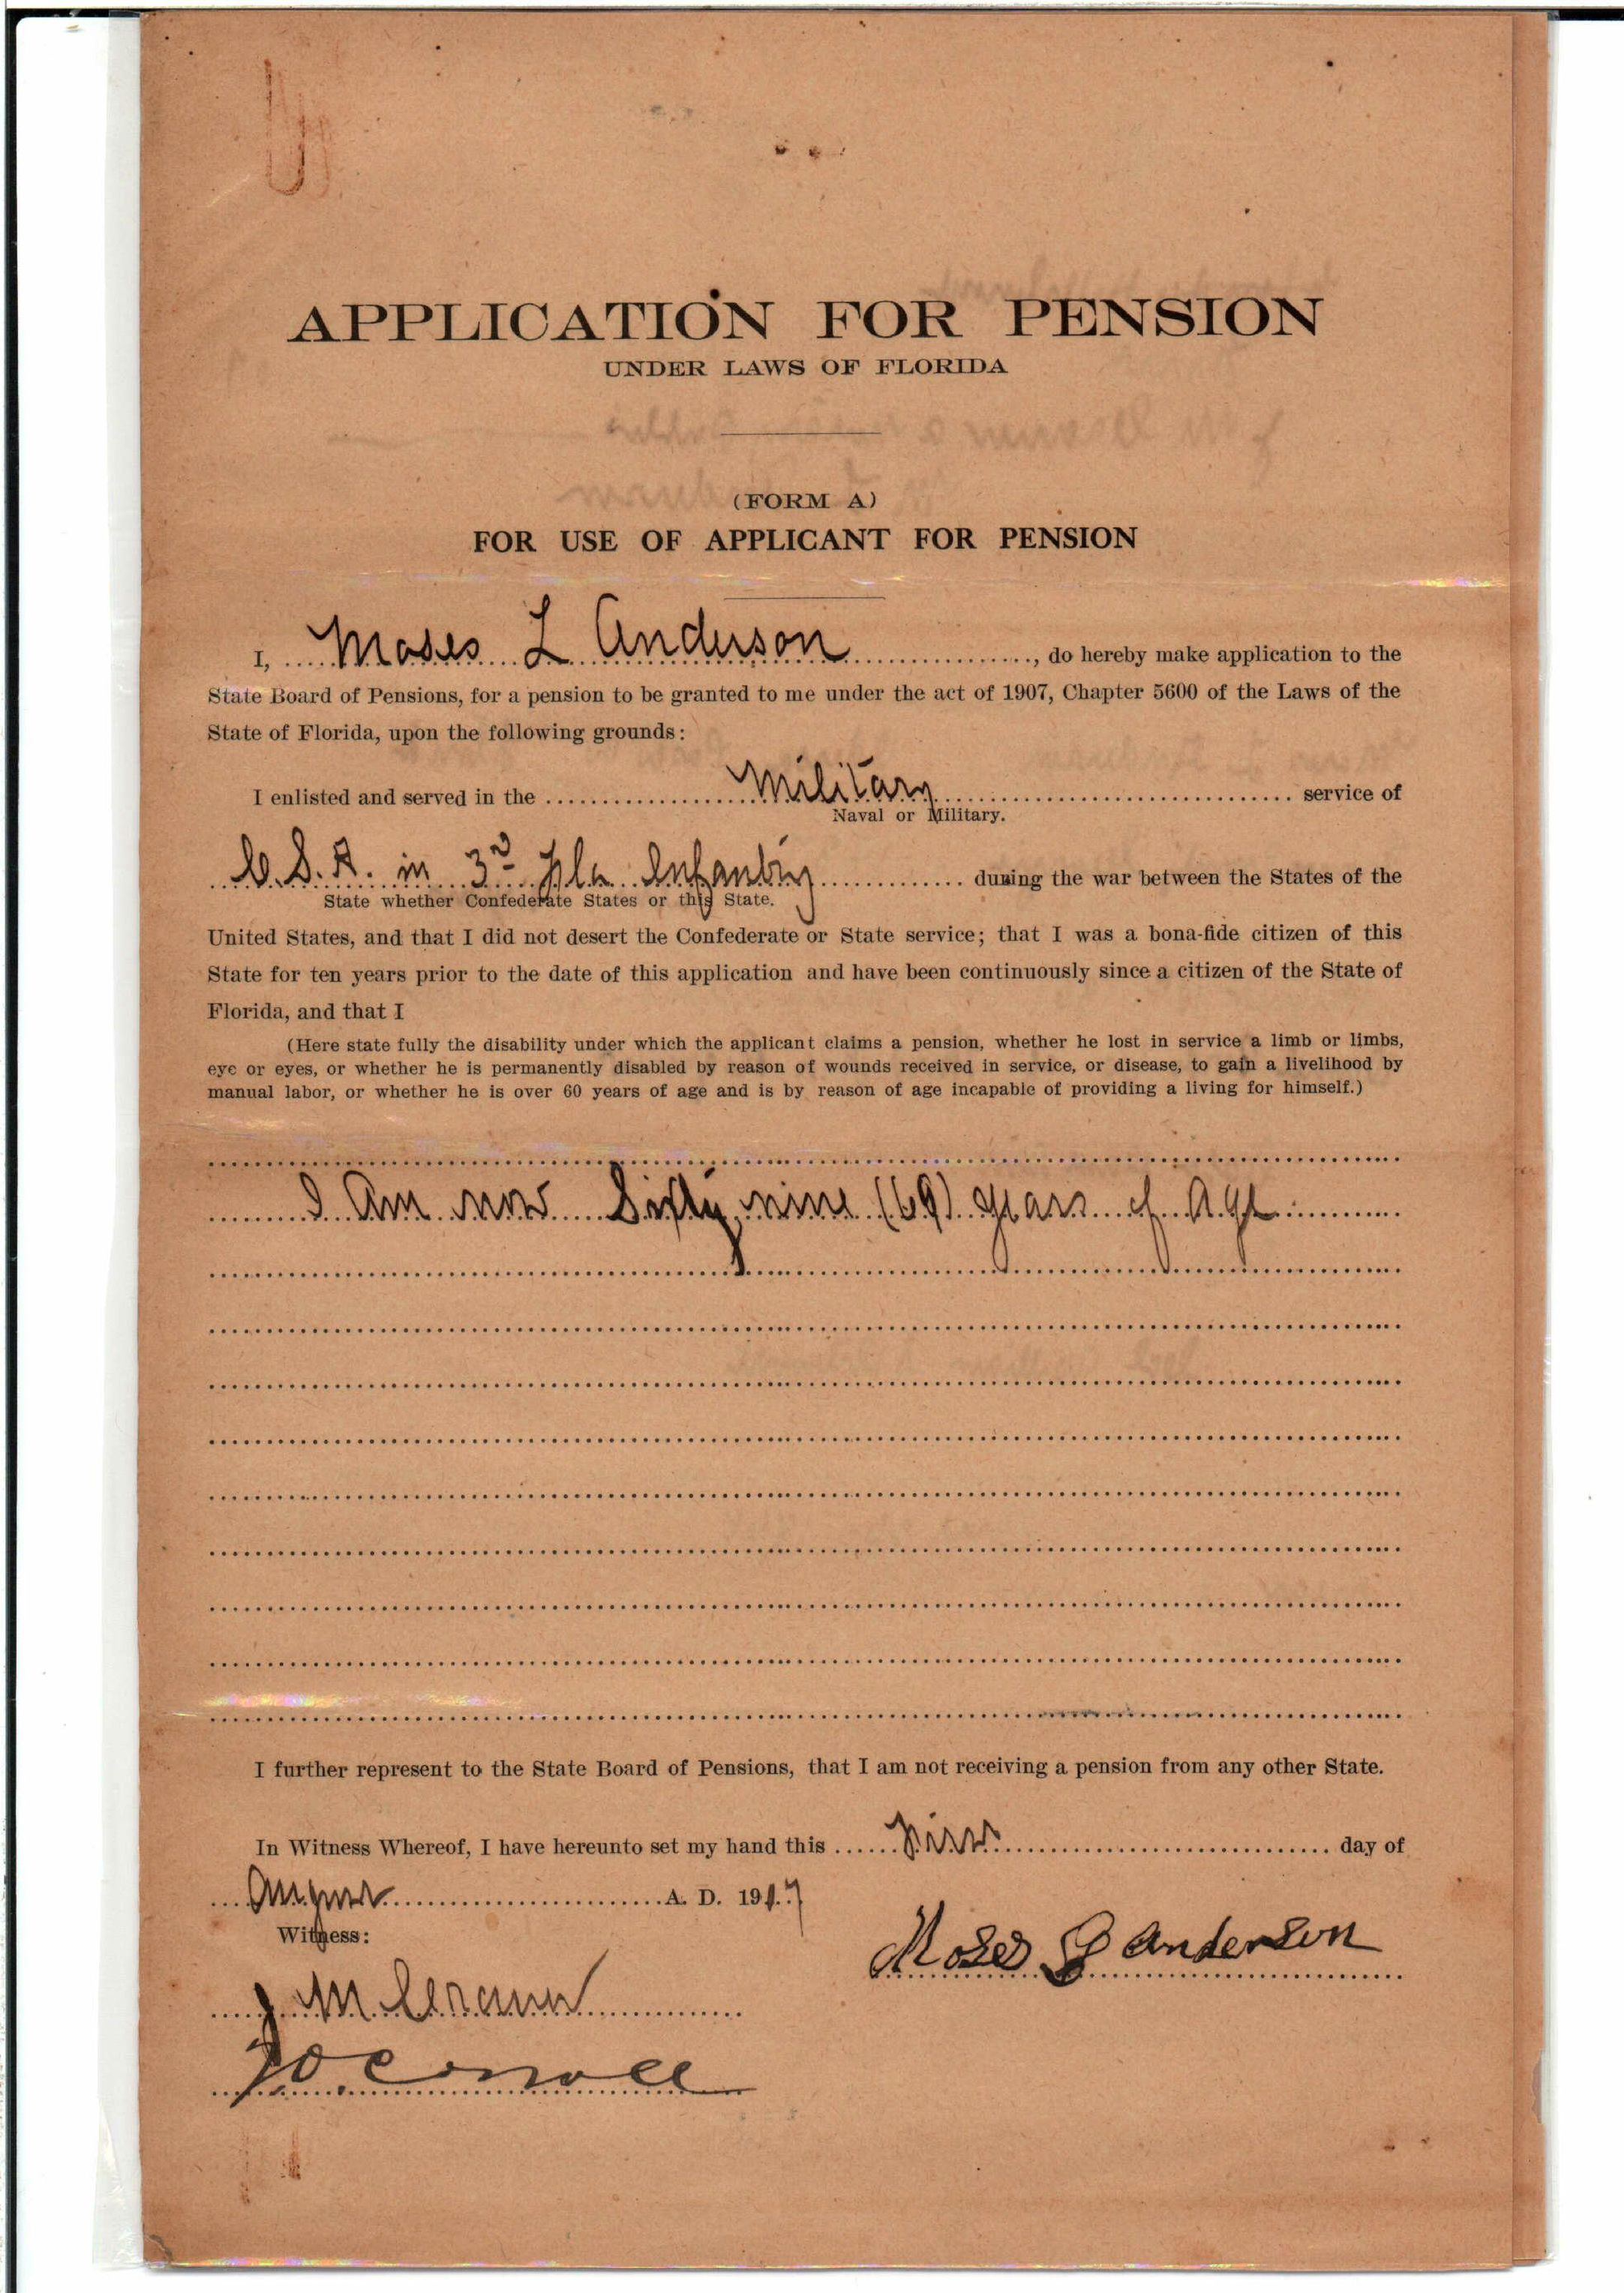 APPLICATION FOR PENSION
UNDER LAWS OF FLORIDA
(FORM A)
FOR USE OF APPLICANT FOR PENSION
I, Moses L Anderson, do hereby make application to the
State Board of Pensions, for a pension to be granted to me under the act of 1907, Chapter 5600 of the Laws of the
State of Florida, upon the following grounds:
I enlisted and served in the Military service of
Naval or Military.
C.S.A. in 3rd Fla Infantry during the war between the States of the
State whether Confederate States or this State.
United States, and that I did not desert the Confederate or State service; that I was a bona-fide citizen of this
State for ten years prior to the date of this application and have been continuously since a citizen of the State of
Florida, and that I
(Here state fully the disability under which the applicant claims a pension, whether he lost in service a limb or limbs,
eye or eyes, or whether he is permanently disabled by reason of wounds received in service, or disease, to gain a livelihood by
manual labor, or whether he is over 60 years of age and is by reason of age incapable of providing a living for himself.)
I Am now Sixty nine (69) years of Age
I further represent to the State Board of Pensions, that I am not receiving a pension from any other State.
In Witness Whereof, I have hereunto set my hand this First day of
August A. D. 1907
Witness:
Moses L Anderson
J. M.